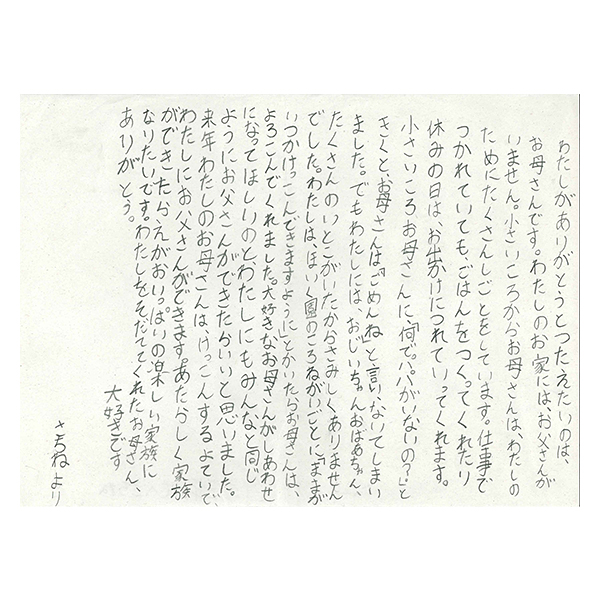 わたしがありがとうとつたえたいのは、
お母さんです。わたしのお家には、お父さんが
いません。小さいころからお母さんは、わたしの
ためにたくさんしごとをしています。仕事で
つかれていても、ごはんをつくってくれたり
休みの日は、お出かけにつれていってくれます。
小さいころお母さんに「何でパパがいないの？」と
きくと、お母さんは「ごめんね」と言い、ないてしまい
ました。でもわたしには、おじいちゃんおばあちゃん、
たくさんのいとこがいたからさみしくありません
でした。わたしは、ほいく園のころねがいごとに「ままが
いつかけっこんできますように」とかいたらお母さんは、
よろこんでくれました。大好きなお母さんがしあわせ
になってほしいのと、わたしにもみんなと同じ
ようにお父さんができたらいいと思いました。
来年わたしのお母さんは、けっこんするよていで、
わたしにお父さんができます。あたらしく家族
ができたらえがおいっぱいの楽しい家族に
なりたいです。わたしをそだててくれたお母さん、
ありがとう。
大好きです
さちねより